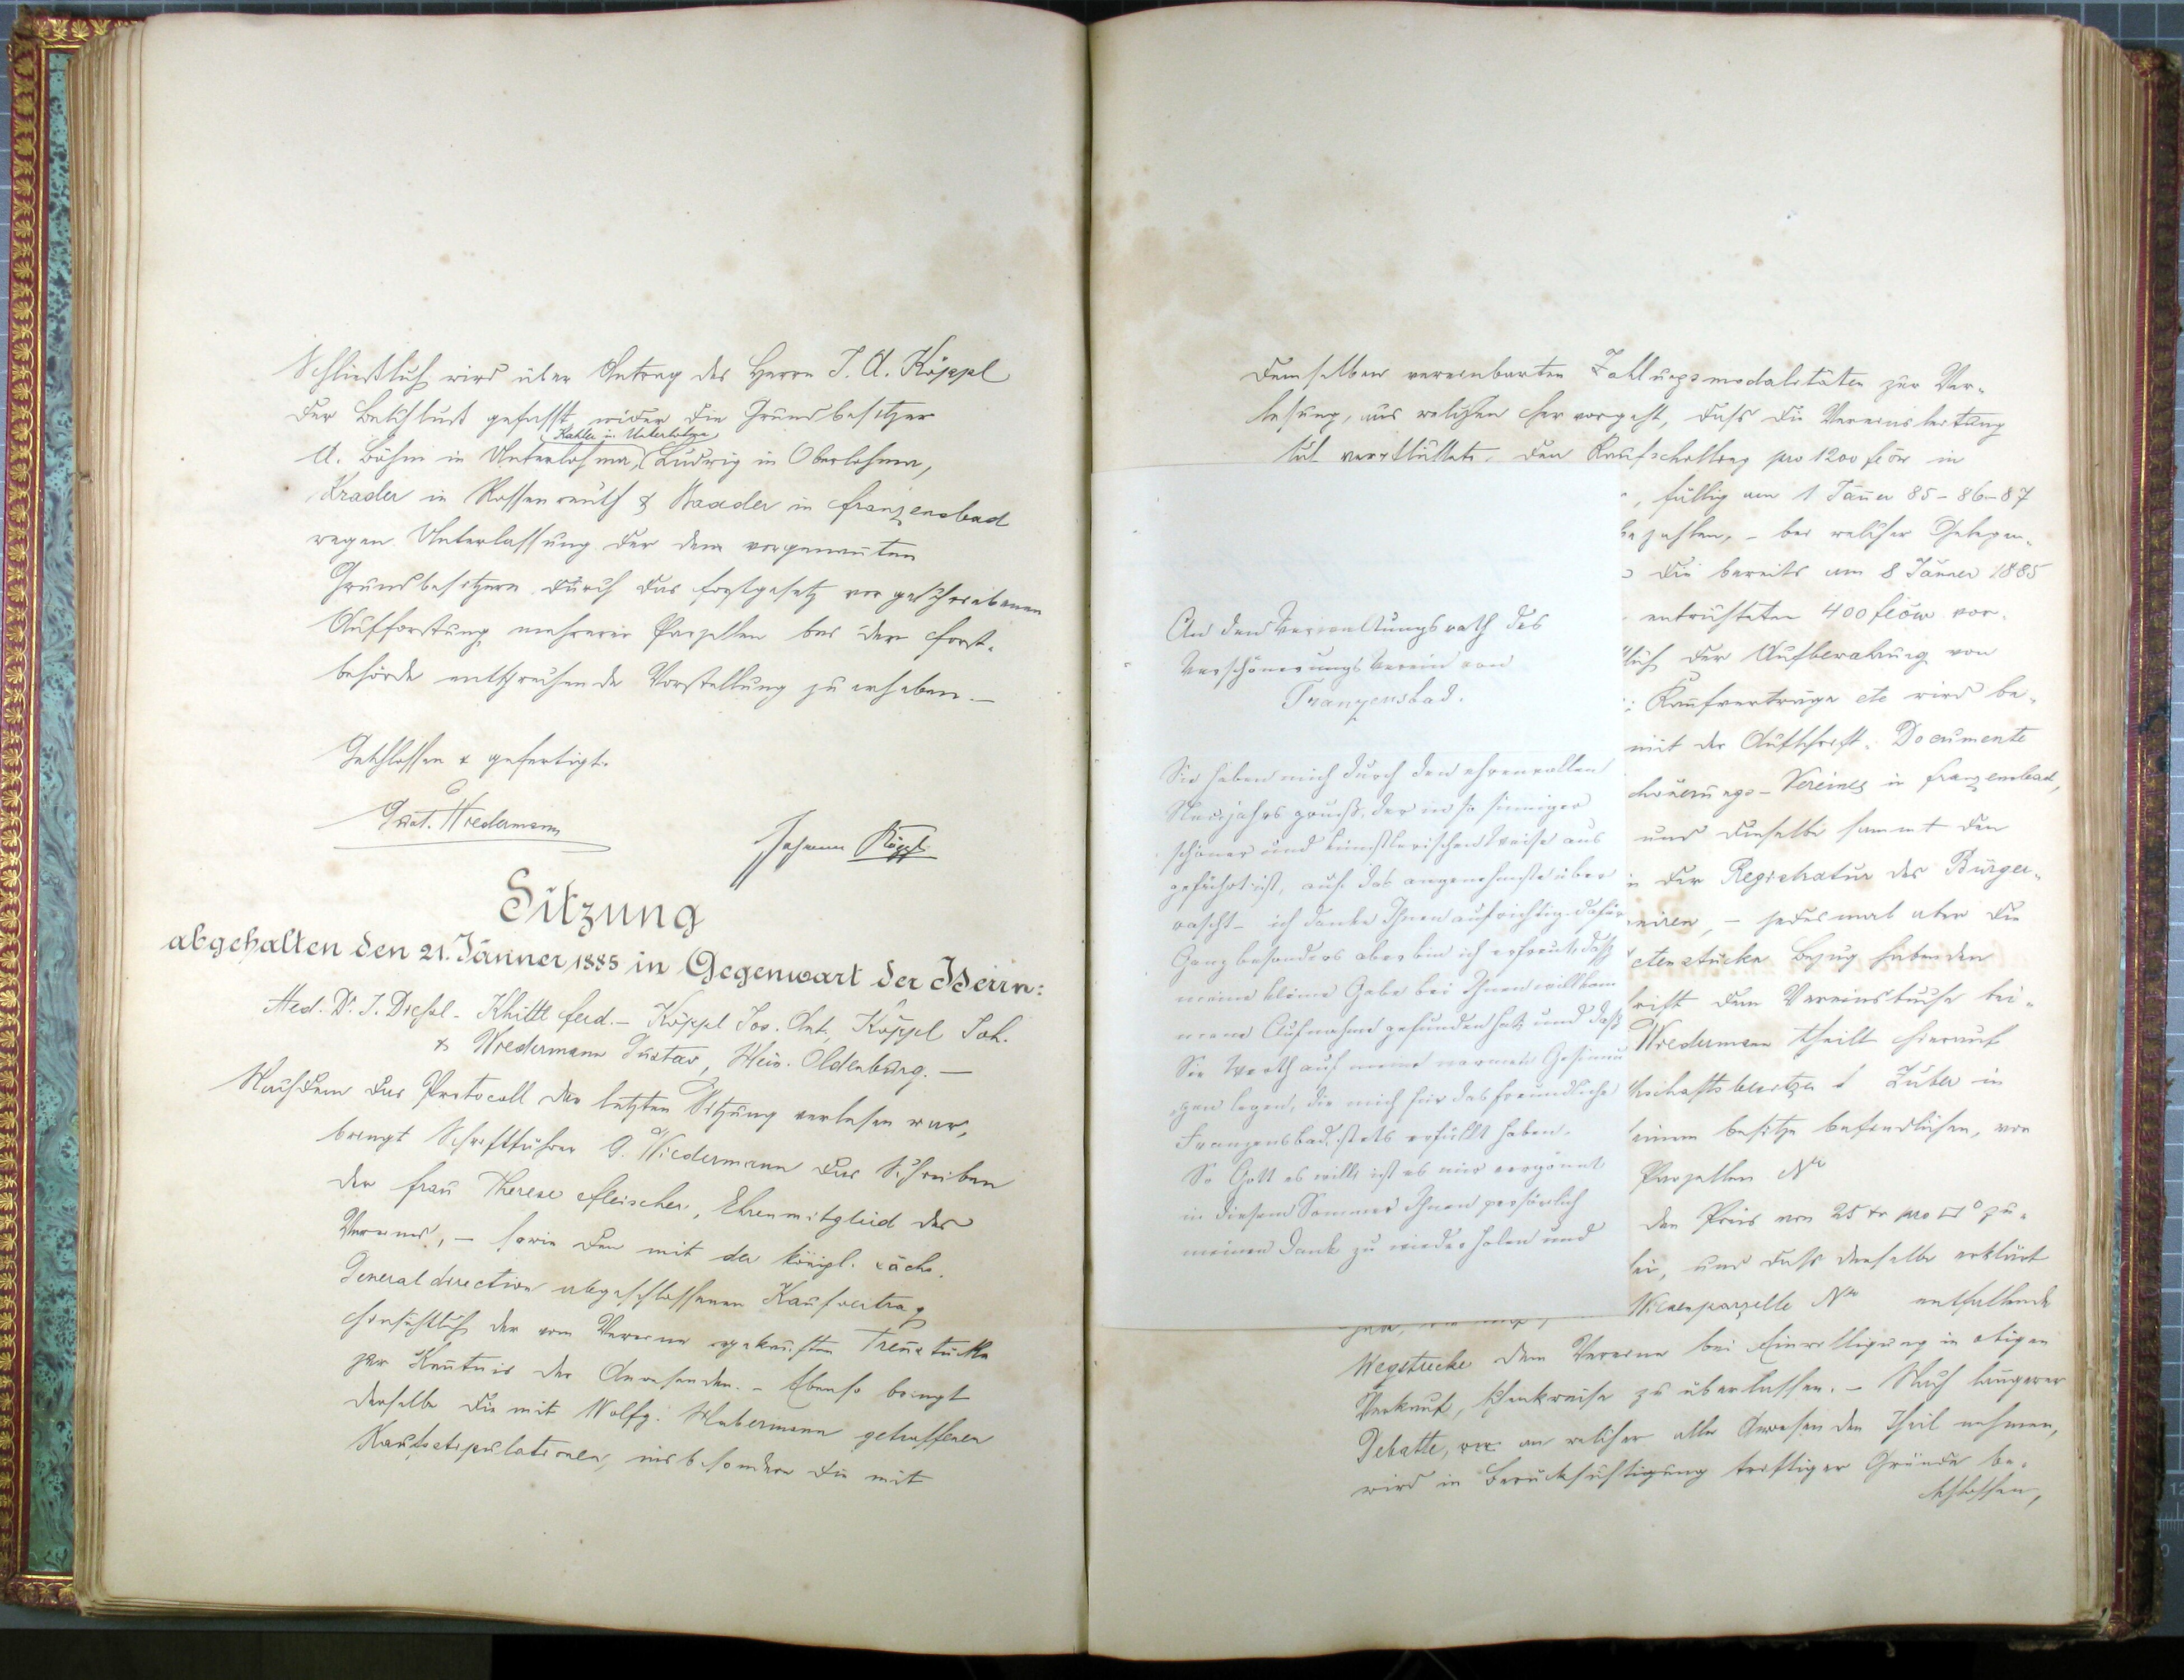 Schließlich wird über Antrag des Herrn J. A. Köppl
der Beschluß gefasst, wider die Grundbesitzer
Kahler in Unterlohma
A. Böhm in Unterlohma, Ludwig in Oberlohma,
Krader in Rossenreuth & Baader in Franzensbad
wegen Unterlassung der den vorgenannten
Grundbesitzern durch das Forstgesetz vorgeschriebenen
Aufforstung mehrerer Parzellen bei der Forst-
behörde entsprechende Vorstellung zu erheben. —
Geschlossen & gefertigt.
Gust. Wiedermann
Johann Köppl
Sitzung
abgehalten den 21. Jänner 1885 in Gegenwart der Herrn:
Med. Dr. J. – Khittl Ferd. – Köppl Jos. Ant., Köppl Joh.
& Wiedermann Gustav, Hein. Oldenburg. —
Nachdem das Protocoll der letzten Sitzung verlesen war,
bringt Schriftführer G. Wiedermann das Schreiben
der Frau Therese Fleischer, Ehrenmitglied des
Vereines, – sowie den mit der königl. sächs.
Generaldirection abgeschlossenen Kaufvertrag
hinsichtlich der vom Vereine gekauften Trennstücke
zur Kenntnis der Anwesenden. – Ebenso bringt
derselbe die mit Wolfg. Habermann getroffenen
Kaufstipulationen, insbesondere die mit
demselben vereinbarten Zahlungsmodalitäten zur Ver-
lesung, aus welchen hervorgeht, dass die Vereinsleitung
den Kaufschilling pro 1200 fl öw in
, fällig am 1 Jänner 85 – 86 – 87
bezahlen, – bei welcher Gelegen-
die bereits am 8 Jänner 1885
entrichteten 400 fl öw vor-
der Aufbewahrung von
: Kaufverträge etc wird be-
mit der Aufschrift: Documente
schönerungs-Vereines in Franzensbad,
und dieselbe sammt den
in der Registratur des Bürger-
niren, – jedesmal aber die
ctenstücke Bezug habenden
dem Vereinsbuche bei-
Wiedermann theilt hierauf
thschaftsbesitzer Zuber in
seinem Besitze befindlichen, von
Parzellen No
den Preis von 25 kr pro □° zu-
sei, und dass derselbe erklärt
Wiesenparzelle No entfallende
Wegstrecke dem Vereine bei Einwilligung in obigen
Verkauf, schenkweise zu überlassen. – Nach längerer
Debatte, an welcher alle Anwesenden Theil nehmen,
wird in Berücksichtigung triftiger Gründe be-
schlossen,
An den Verwaltungsrath des
Verschönerungs Verein von
Franzensbad.
Sie haben mich durch den ehrenvollen
Neujahrs gruß, der in so sinniger
schöner und künstlerischer Weise aus
geführt ist, auf das angenehmste über
rascht – ich danke Ihnen aufrichtig dafür
Ganz besonders aber bin ich erfreut, daß
meine kleine Gabe bei Ihnen willkom
mene Aufnahme gefunden hat, und daß
Sie Werth auf meine warmen Gesinnun
gen legen, die mich für das freundliche
Franzensbad stets erfüllt haben.
So Gott es will, ist es mir vergönnt
in diesem Sommer Ihnen persönlich
meinen Dank zu wiederholen und